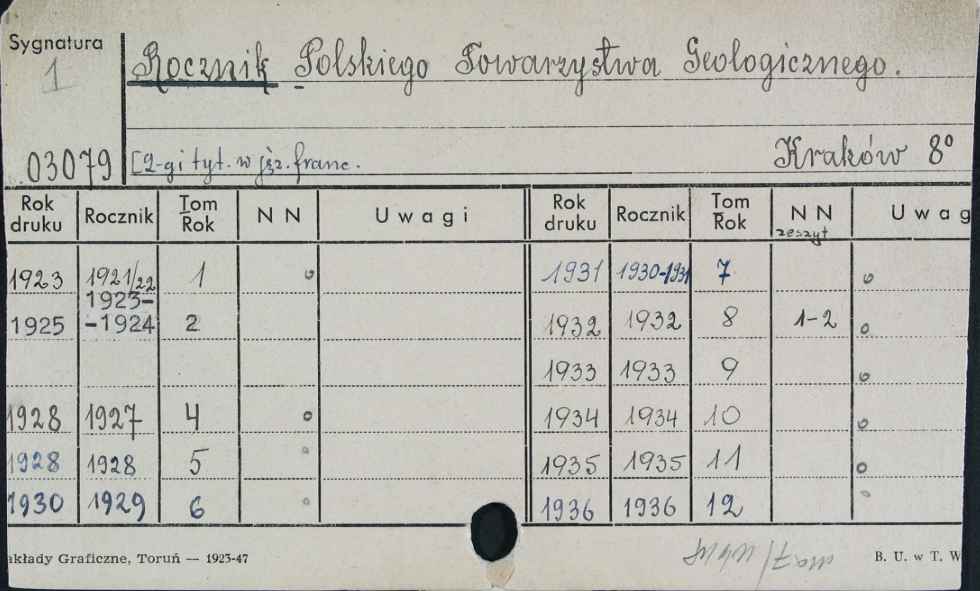 Sygnatura
1
Rocznik Polskiego Towarzystwa Geologicznego.
03079 [2-gi tyt. w jęz. franc. Kraków 8°
Rok druku Rocznik Tom Rok N N Uwagi Rok druku Rocznik Tom Rok N N zeszyt Uwag
1923 1921/22 1 o 1931 1930-1931 7 o
1925 1923-1924 2 1932 1932 8 1-2 o
1933 1933 9 o
1928 1927 4 o 1934 1934 10 o
1928 1928 5 o 1935 1935 11 o
1930 1929 6 o 1936 1936 12 o
akłady Graficzne, Toruń — 1923-47 B. U. w T. W